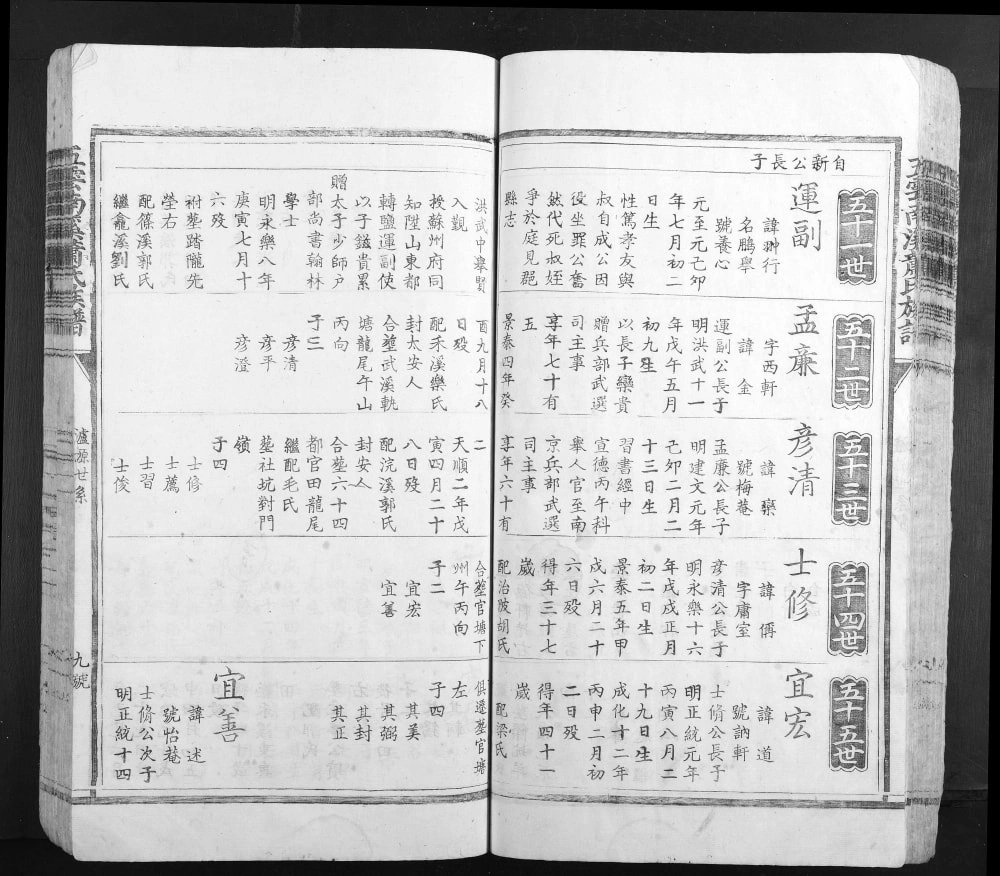 自新公長子
五十一世
運副
諱翀行
名鵬舉
號養心
元至元己卯
年七月初二
日生
性篤孝友與
叔自成公因
役坐罪公奮
然代死叔姪
爭於庭見邑
縣志
洪武中舉賢
入觀
授蘇州府同
知陞山東都
轉鹽運副使
以子鎡貴累
贈太子少師戶
部尚書翰林
學士
明永樂八年
庚寅七月十
六歿
祔塟踏隴先
塋右
配篠溪郭氏
繼龕溪劉氏
五十二世
孟廉
字西軒
諱金
運副公長子
明洪武十一
年戊午五月
初九生
以長子欒貴
贈兵部武選
司主事
享年七十有
五
景泰四年癸
酉九月十八
日歿
配禾溪樂氏
封太安人
合塟武溪軏
塘龍尾午山
丙向
子三
彥清
彥平
彥澄
五十三世
彥清
諱欒
號梅菴
孟廉公長子
明建文元年
己卯二月二
十三日生
習書經中
宣德丙午科
舉人官至南
京兵部武選
司主事
享年六十有
二
天順二年戊
寅四月二十
八日歿
配浣溪郭氏
封安人
合塟六十四
都官田龍尾
繼配毛氏
塟社坑對門
嶺
子四
士修
士薦
士習
士俊
五十四世
士修
諱僃
字庸室
彥清公長子
明永樂十六
年戊戌正月
初二日生
景泰五年甲
戌六月二十
六日歿
得年三十七
歲
配治陂胡氏
合塟官塘下
州午丙向
子二
宜宏
宜善
五十五世
宜宏
諱道
號訥軒
士脩公長子
明正統元年
丙寅八月二
十九日生
成化十二年
丙申二月初
二日歿
得年四十一
歲
配梁氏
俱遷塟官塘
左
子四
其美
其弼
其封
其正
宜善
諱述
號怡菴
士脩公次子
明正統十四
瀘源世系
九號